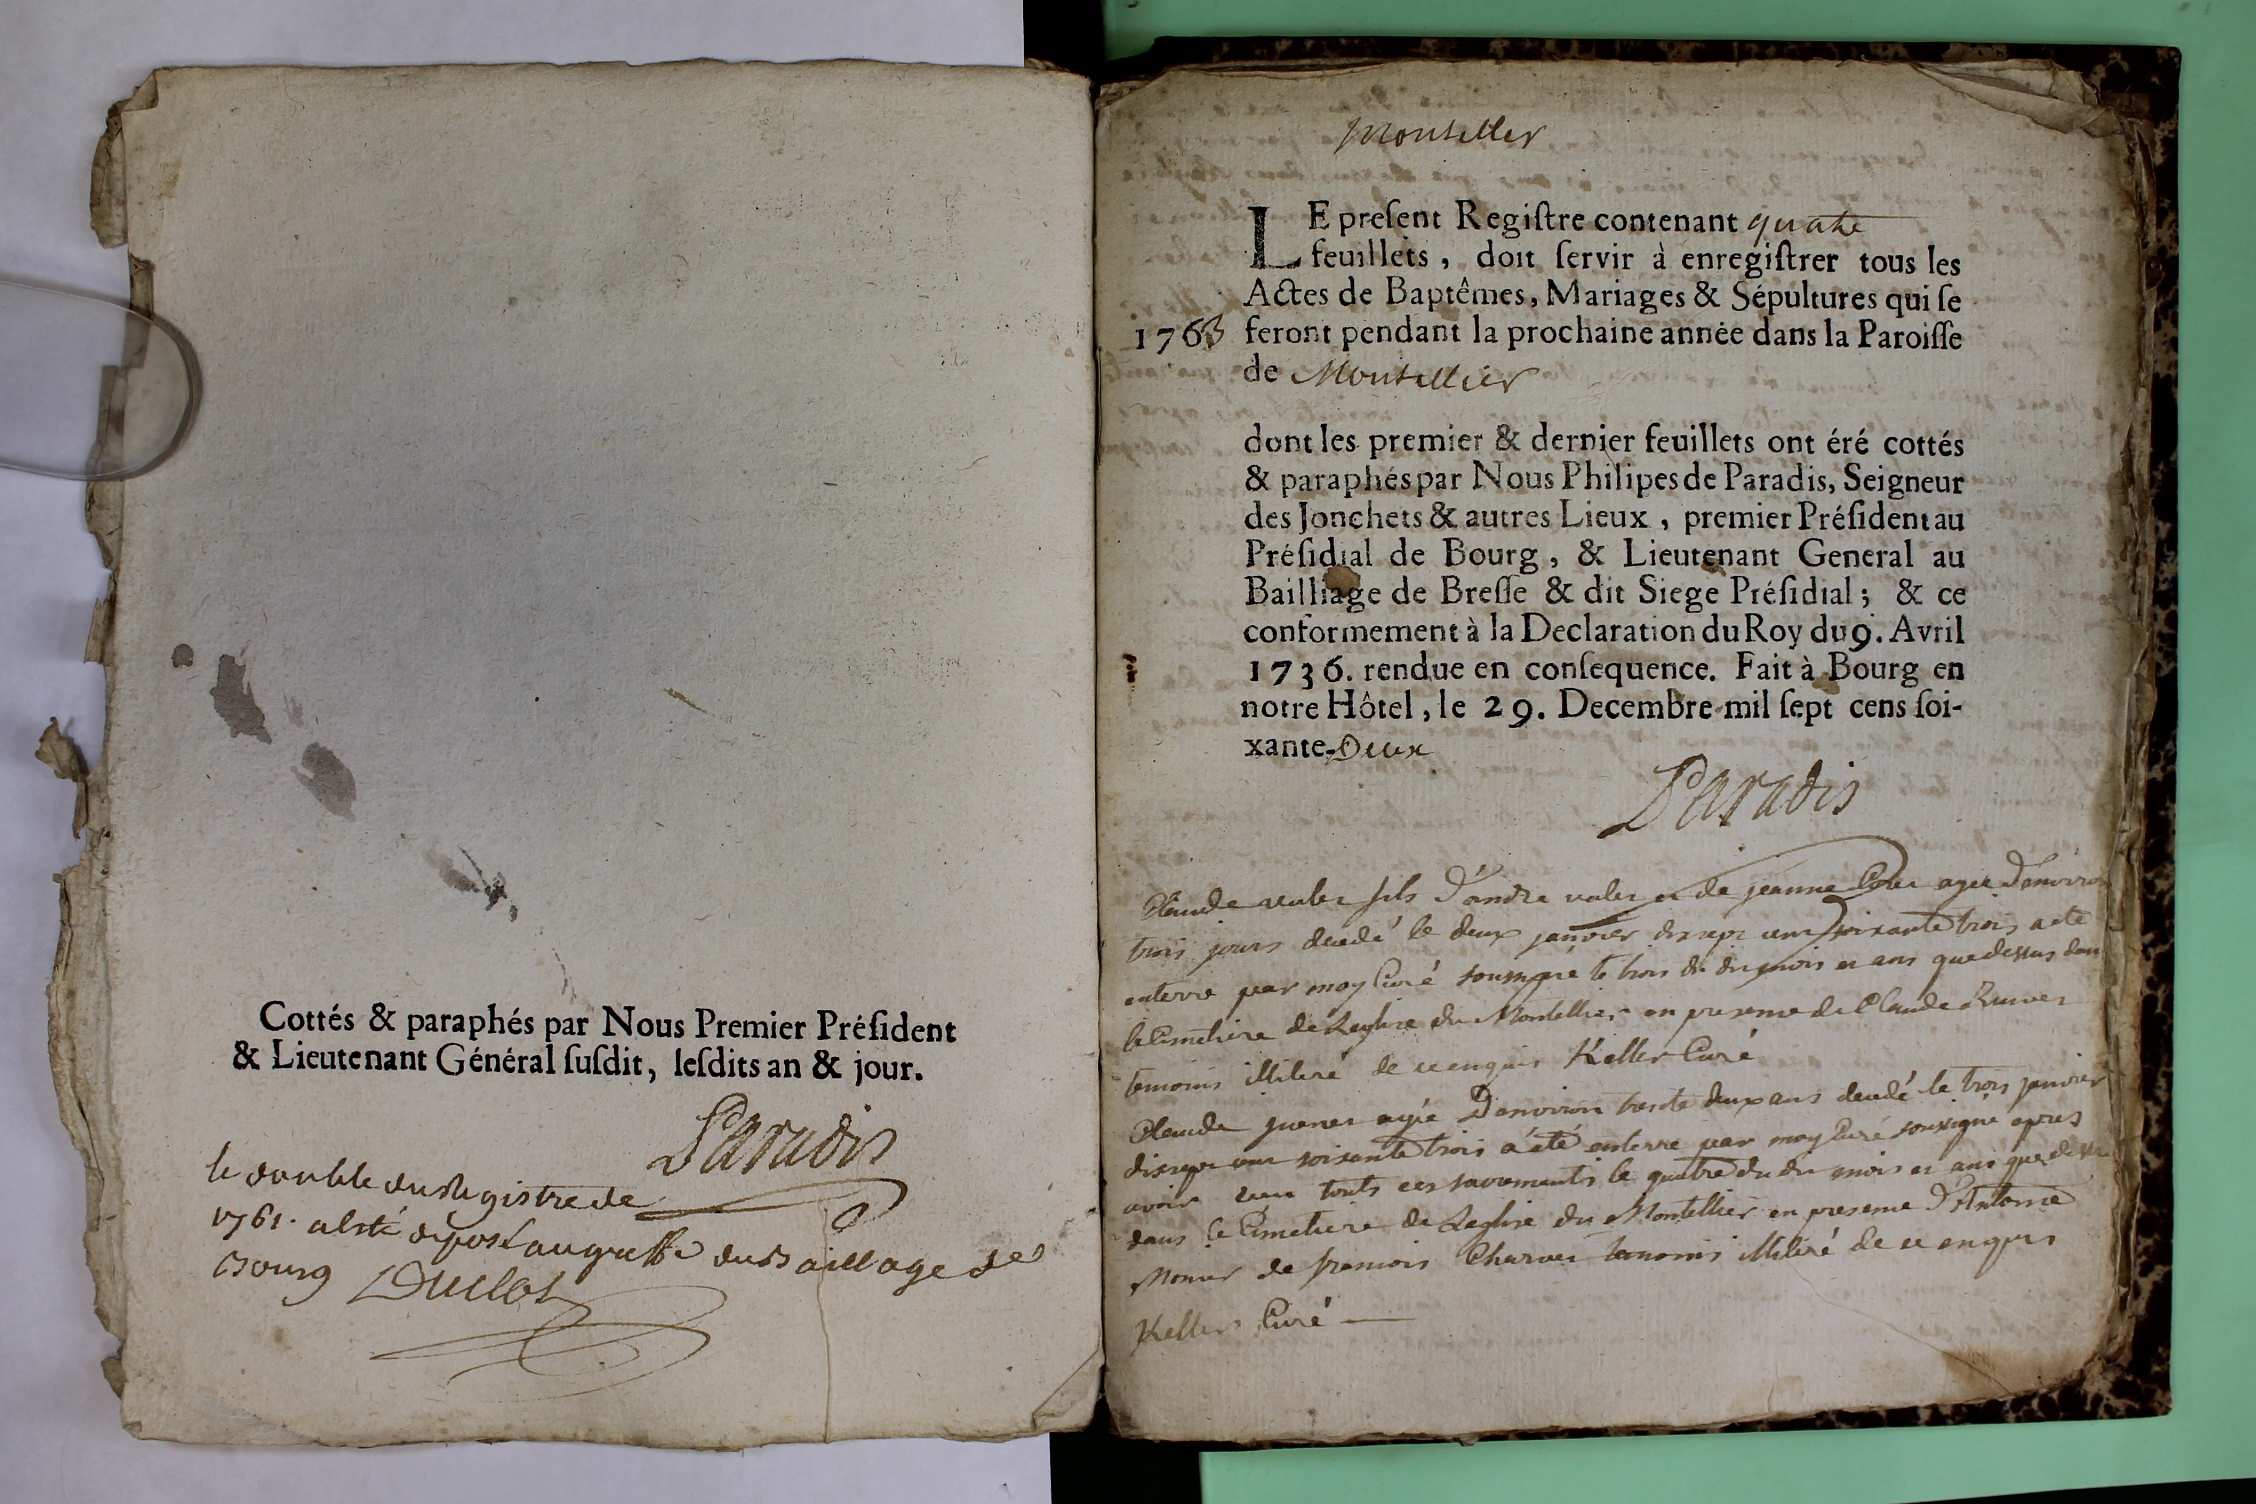 Cottés & paraphés par Nous Premier Préſident
& Lieutenant Général ſuſdit, leſdits an & jour.
Paradis
le double du Registre de
1761. a êté deposé au greffe du Baillage de
Bourg Duclos
Montellier
LE preſent Regiſtre contenant quatre
feuillets, doit ſervir à enregiſtrer tous les
Actes de Baptêmes, Mariages & Sépultures qui ſe
1763 feront pendant la prochaine année dans la Paroiſſe
de Montellier
dont les premier & dernier feuillets ont éré cottés
& paraphés par Nous Philipes de Paradis, Seigneur
des Jonchets & autres Lieux, premier Préſident au
Préſidial de Bourg, & Lieutenant General au
Bailliage de Breſſe & dit Siege Préſidial; & ce
conformement à la Declaration du Roy du 9. Avril
1736. rendue en conſequence. Fait à Bourg en
notre Hôtel, le 29. Decembre mil ſept cens ſoi-
xante-Deux
Paradis
Claude fils D'andre et de jeanne agee D'anviron
trois jours decedé le deux janvier dix sept cent soixante trois a ete
enterre par moy Curé soussigné le trois du du mois et ans que dessus dans
le Cimetiere de Leglise du Montellier en presence de Claude
temoins illiteré de ce enquis Keller Curé
Claude agée D'anviron trente deux ans decedé le trois janvier
dix sept cent soixante trois a été enterre par moy Curé soussigné apres
avoir recu touts ces sacrements le quatre du du mois et ans que dessus
dans le Cimetiere de Leglise du Montellier en presence D'Antoine
Monier de francois Charvet temoins illiteré de ce enquis
Keller Curé